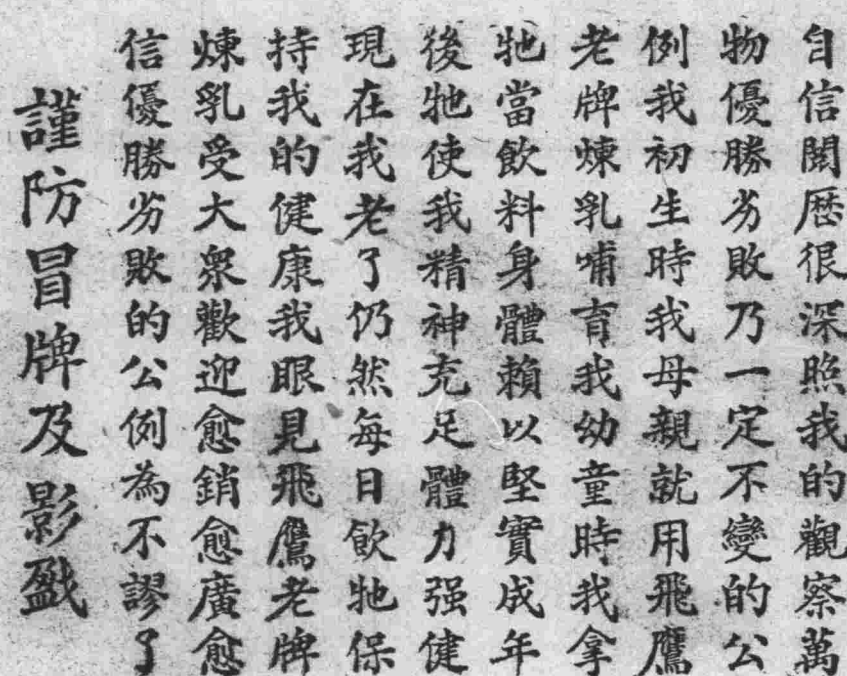 自信閱歷很深照我的觀察萬
物優勝劣敗乃一定不變的公
例我初生時我母親就用飛鷹
老牌煉乳哺育我幼童時我拿
牠當飲料身體賴以堅實成年
後牠使我精神充足體力强健
現在我老了仍然每日飲牠保
持我的健康我眼見飛鷹老牌
煉乳受大衆歡迎愈銷愈廣愈
信優勝劣敗的公例為不謬了
謹防冒牌及影戤